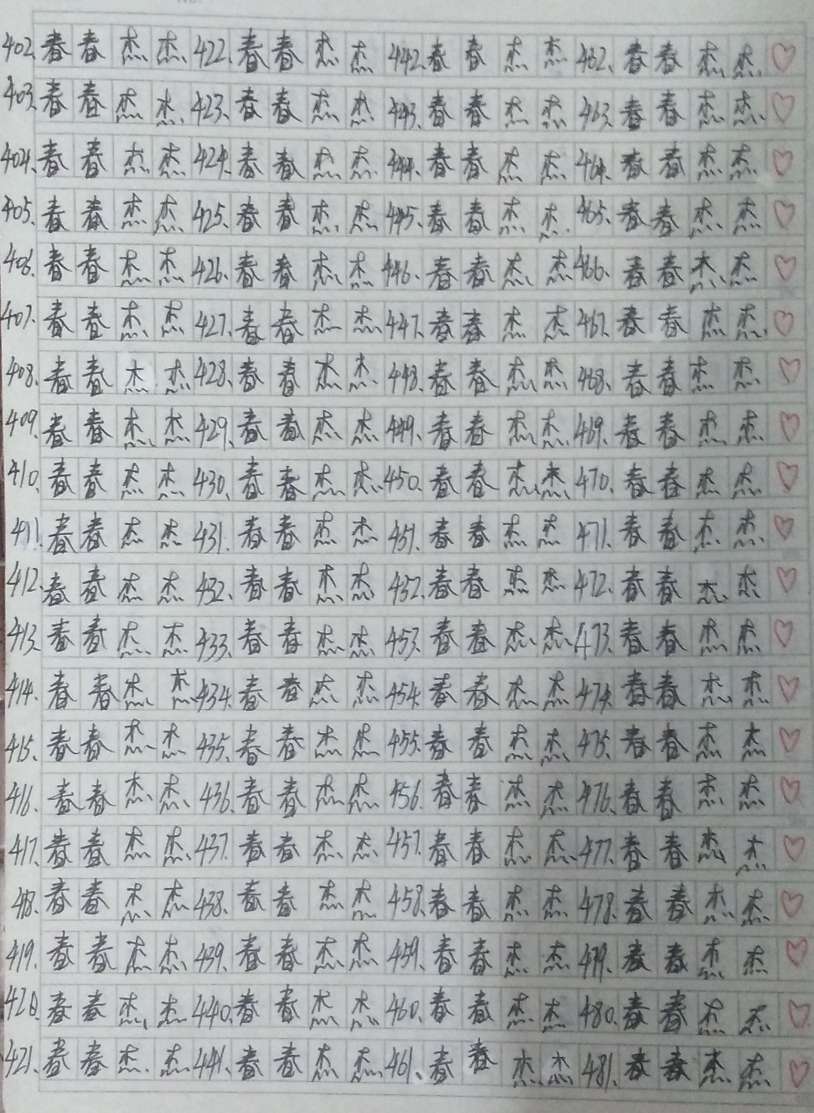 402、春春杰杰 422、春春杰杰 442、春春杰杰 462、春春杰杰♡
403、春春杰杰 423、春春杰杰 443、春春杰杰 463、春春杰杰♡
404、春春杰杰 424、春春杰杰 444、春春杰杰 464、春春杰杰♡
405、春春杰杰 425、春春杰杰 445、春春杰杰 465、春春杰杰♡
406、春春杰杰 426、春春杰杰 446、春春杰杰 466、春春杰杰♡
407、春春杰杰 427、春春杰杰 447、春春杰杰 467、春春杰杰♡
408、春春杰杰 428、春春杰杰 448、春春杰杰 468、春春杰杰♡
409、春春杰杰 429、春春杰杰 449、春春杰杰 469、春春杰杰♡
410、春春杰杰 430、春春杰杰 450、春春杰杰 470、春春杰杰♡
411、春春杰杰 431、春春杰杰 451、春春杰杰 471、春春杰杰♡
412、春春杰杰 432、春春杰杰 452、春春杰杰 472、春春杰杰♡
413、春春杰杰 433、春春杰杰 453、春春杰杰 473、春春杰杰♡
414、春春杰杰 434、春春杰杰 454、春春杰杰 474、春春杰杰♡
415、春春杰杰 435、春春杰杰 455、春春杰杰 475、春春杰杰♡
416、春春杰杰 436、春春杰杰 456、春春杰杰 476、春春杰杰♡
417、春春杰杰 437、春春杰杰 457、春春杰杰 477、春春杰杰♡
418、春春杰杰 438、春春杰杰 458、春春杰杰 478、春春杰杰♡
419、春春杰杰 439、春春杰杰 459、春春杰杰 479、春春杰杰♡
420、春春杰杰 440、春春杰杰 460、春春杰杰 480、春春杰杰♡
421、春春杰杰 441、春春杰杰 461、春春杰杰 481、春春杰杰♡